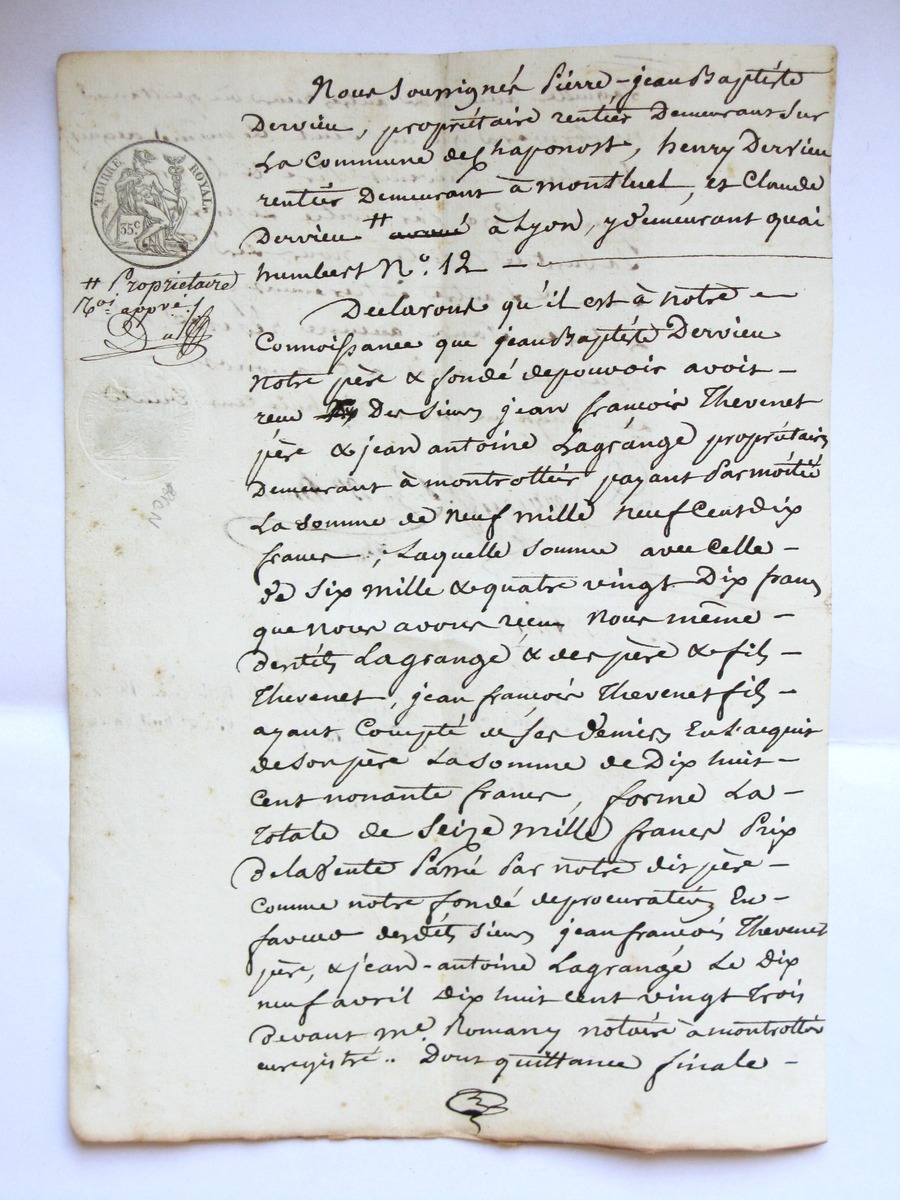 Nous soussignés Pierre-jean Baptiste
Dervieu, propriétaire rentier Demeurant sur
La Commune de Chaponost, henry Dervieu
rentier Demeurant à montluel, et Claude
Dervieu ++ avoué à Lyon, y demeurant quai
humbert N°. 12 —
TIMBRE ROYAL
35 c
++ Propriétaire
approuvé
Declarons qu'il est à notre —
Connoissance que jean Baptiste Dervieu
notre père & fondé de pouvoir avoit —
reçu Des Sieurs jean françois Thevenet
père & jean antoine Lagrange propriétaires
Demeurant à montrottier payant Par moitié
La somme de neuf mille neuf Cent dix
francs, Laquelle somme avec Celle —
de six mille & quatre vingt Dix francs
que nous avons reçeu nous même —
desdits Lagrange & des père & fils —
Thevenet, jean françois Thevenet fils —
ayant Compté de ses deniers En L'acquit
de son père La somme de Dix huit —
Cent nonante francs, forme La —
Totale de Seize mille francs Prix
de la Vente Passé Par notre dit père —
comme notre fondé de procuration En —
faveur desdits sieurs jean françois Thevenet
père, & jean-antoine Lagrange Le Dix
neuf avril Dix huit Cent vingt Trois
Devant me. Romany notaire à montrottier
enregistré.. Dont quittance finale —